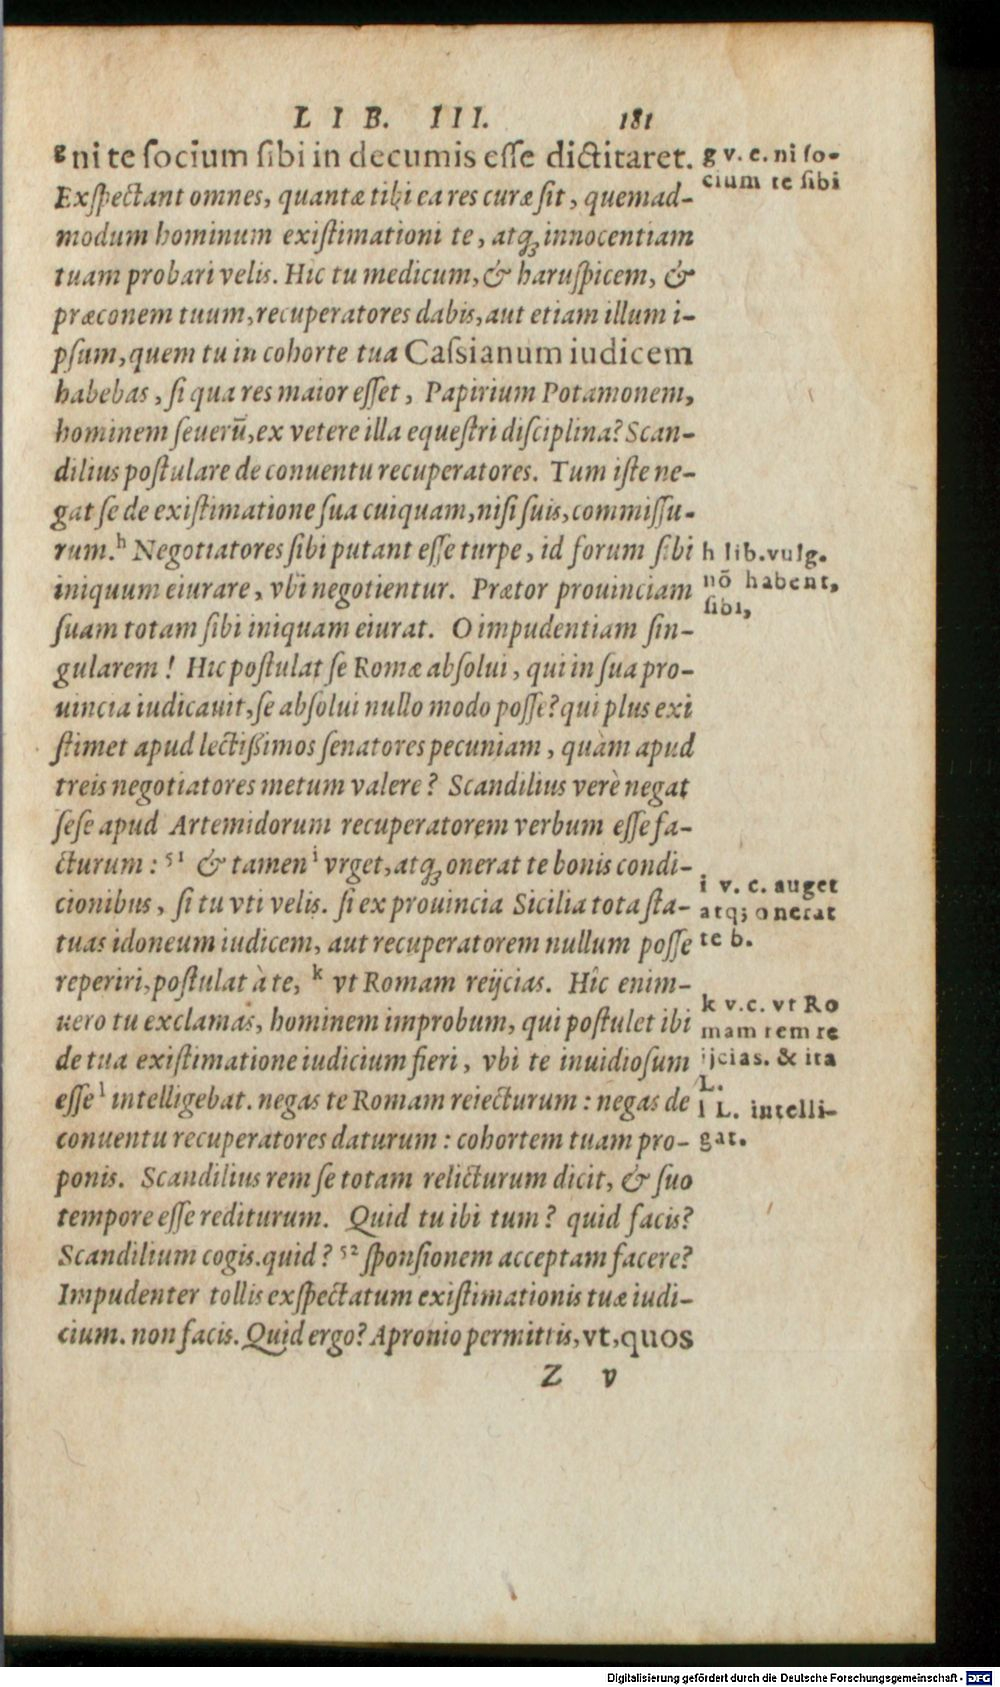 LIB. III. 181
g ni te ſocium ſibi in decumis eſſe dictitaret.
Exſpectant omnes, quantæ tibi ea res curæ ſit, quemad-
modum hominum exiſtimationi te, atq; innocentiam
tuam probari velis. Hic tu medicum, & haruſpicem, &
præconem tuum, recuperatores dabis, aut etiam illum i-
pſum, quem tu in cohorte tua Caſsianum iudicem
habebas, ſi qua res maior eſſet, Papirium Potamonem,
hominem ſeuerū, ex vetere illa equeſtri diſciplina? Scan-
dilius poſtulare de conuentu recuperatores. Tum iſte ne-
gat ſe de exiſtimatione ſua cuiquam, niſi ſuis, commiſſu-
rum. h Negotiatores ſibi putant eſſe turpe, id forum ſibi
iniquum eiurare, vbi negotientur. Prætor prouinciam
ſuam totam ſibi iniquam eiurat. O impudentiam ſin-
gularem! Hic poſtulat ſe Romæ abſolui, qui in ſua pro-
uincia iudicauit, ſe abſolui nullo modo poſſe? qui plus exi
ſtimet apud lectißimos ſenatores pecuniam, quàm apud
treis negotiatores metum valere? Scandilius verè negat
ſeſe apud Artemidorum recuperatorem verbum eſſe fa-
cturum: 51 & tamen i vrget, atq; onerat te bonis condi-
cionibus, ſi tu vti velis. ſi ex prouincia Sicilia tota ſta-
tuas idoneum iudicem, aut recuperatorem nullum poſſe
reperiri, poſtulat à te, k vt Romam reijcias. Hîc enim-
uero tu exclamas, hominem improbum, qui poſtulet ibi
de tua exiſtimatione iudicium fieri, vbi te inuidioſum
eſſe l intelligebat. negas te Romam reiecturum: negas de
conuentu recuperatores daturum: cohortem tuam pro-
ponis. Scandilius rem ſe totam relicturum dicit, & ſuo
tempore eſſe rediturum. Quid tu ibi tum? quid facis?
Scandilium cogis. quid? 52 ſponſionem acceptam facere?
Impudenter tollis exſpectatum exiſtimationis tuæ iudi-
cium. non facis. Quid ergo? Apronio permittis, vt, quos
Z v
g v. c. ni ſo-
cium te ſibi
h lib. vulg.
nō habent,
ſibi,
i v. c. auget
atq; onerat
te b.
k v. c. vt Ro
mam rem re
ijcias. & ita
L.
l L. intelli-
gat.
Digitalisierung gefördert durch die Deutsche Forschungsgemeinschaft - DFG